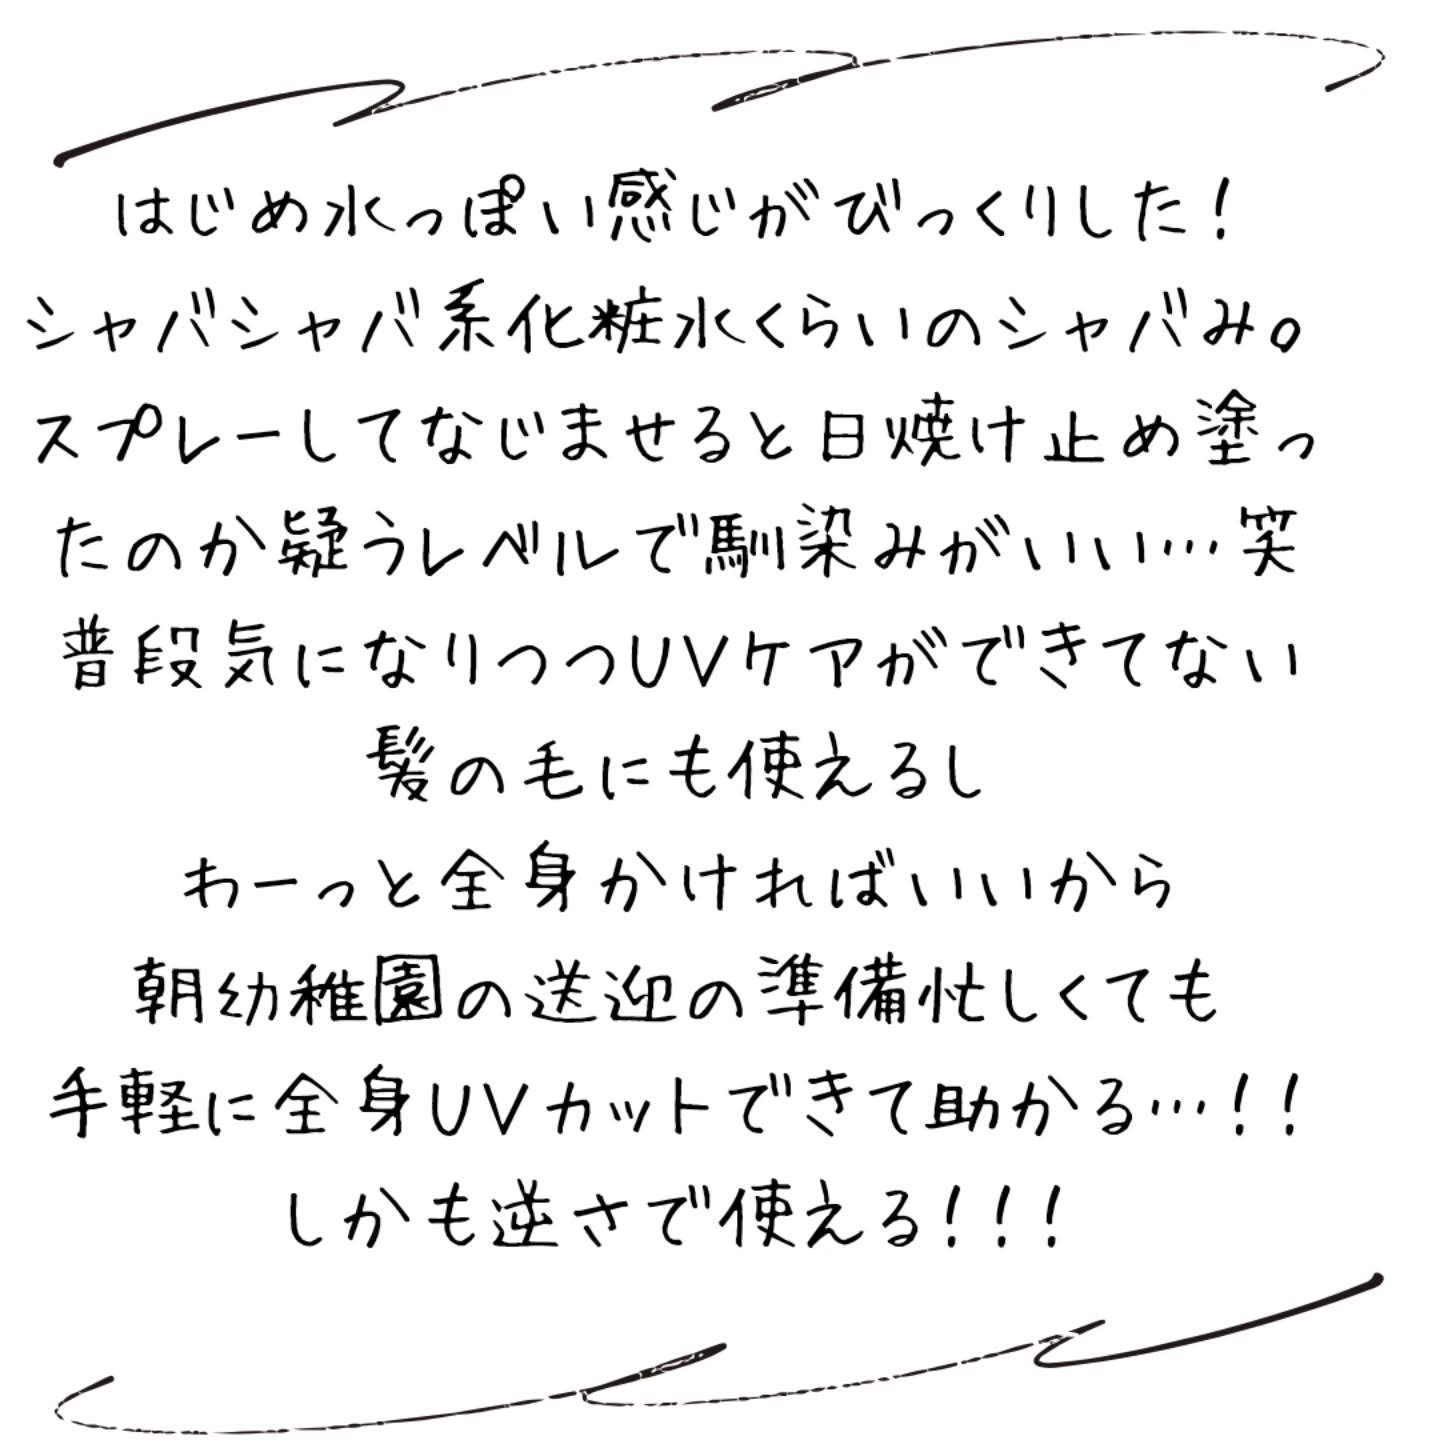 はじめ水っぽい感じがびっくりした！
シャバシャバ系化粧水くらいのシャバみ。
スプレーしてなじませると日焼け止め塗っ
たのか疑うレベルで馴染みがいい…笑
普段気になりつつUVケアができてない
髪の毛にも使えるし
わーっと全身かければいいから
朝幼稚園の送迎の準備忙しくても
手軽に全身UVカットできて助かる…！！
しかも逆さで使える！！！